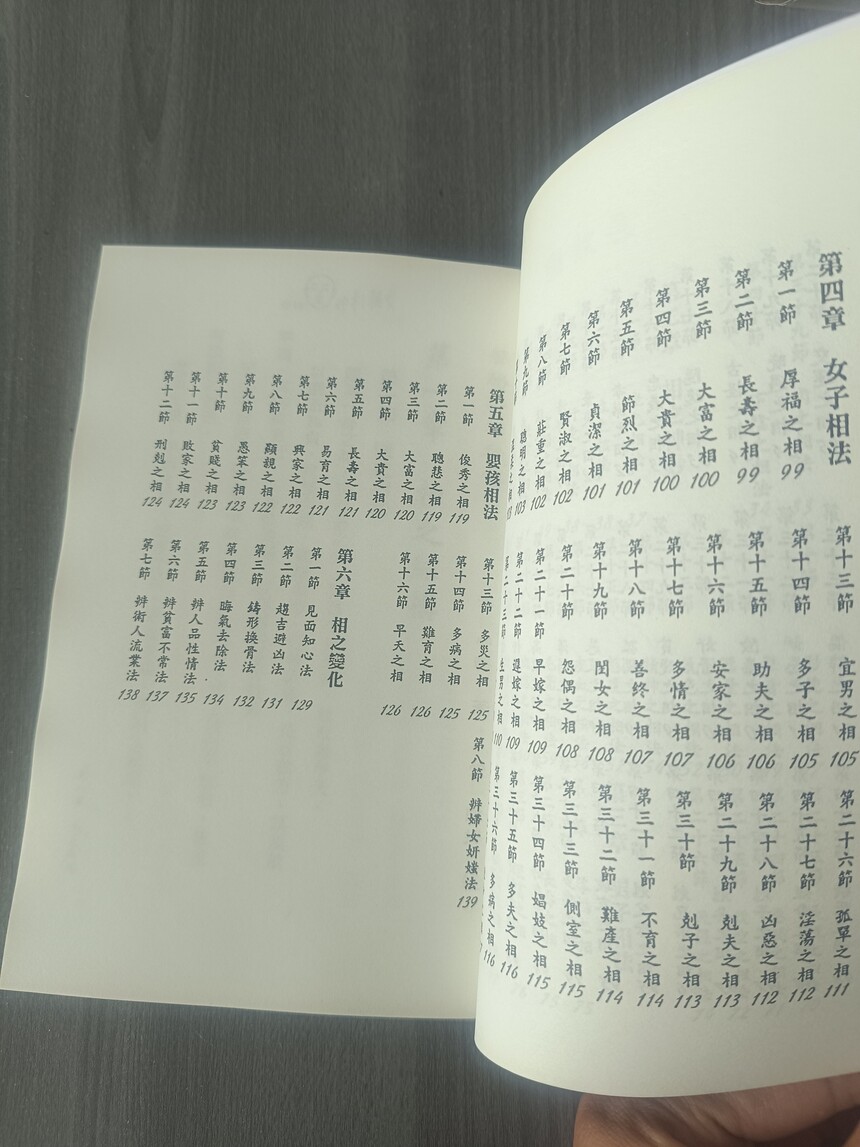 第四章 女子相法
第一節 厚福之相 99
第二節 長壽之相 99
第三節 大富之相 100
第四節 大貴之相 100
第五節 節烈之相 101
第六節 貞潔之相 101
第七節 賢淑之相 102
第八節 莊重之相 102
第九節 聰明之相 103
第十三節 宜男之相 105
第十四節 多子之相 105
第十五節 助夫之相 106
第十六節 安家之相 106
第十七節 多情之相 107
第十八節 善終之相 107
第十九節 閨女之相 108
第二十節 怨偶之相 108
第二十一節 早嫁之相 109
第二十二節 遲嫁之相 109
第二十三節 生男之相 110
第二十六節 孤單之相 111
第二十七節 淫蕩之相 112
第二十八節 凶惡之相 112
第二十九節 剋夫之相 113
第三十節 剋子之相 113
第三十一節 不育之相 114
第三十二節 難產之相 114
第三十三節 側室之相 115
第三十四節 娼妓之相 115
第三十五節 多夫之相 116
第三十六節 多病之相 116
第五章 嬰孩相法
第一節 俊秀之相 119
第二節 聰慧之相 119
第三節 大富之相 120
第四節 大貴之相 120
第五節 長壽之相 121
第六節 易育之相 121
第七節 興家之相 122
第八節 顯親之相 122
第九節 愚笨之相 123
第十節 貧賤之相 123
第十一節 敗家之相 124
第十二節 刑剋之相 124
第十三節 多災之相 125
第十四節 多病之相 125
第十五節 難育之相 126
第十六節 早夭之相 126
第六章 相之變化
第一節 見面知心法 129
第二節 趨吉避凶法 131
第三節 鑄形換骨法 132
第四節 晦氣去除法 134
第五節 辨人品性情法 135
第六節 辨貧富不常法 137
第七節 辨術人流業法 138
第八節 辨婦女妍媸法 139